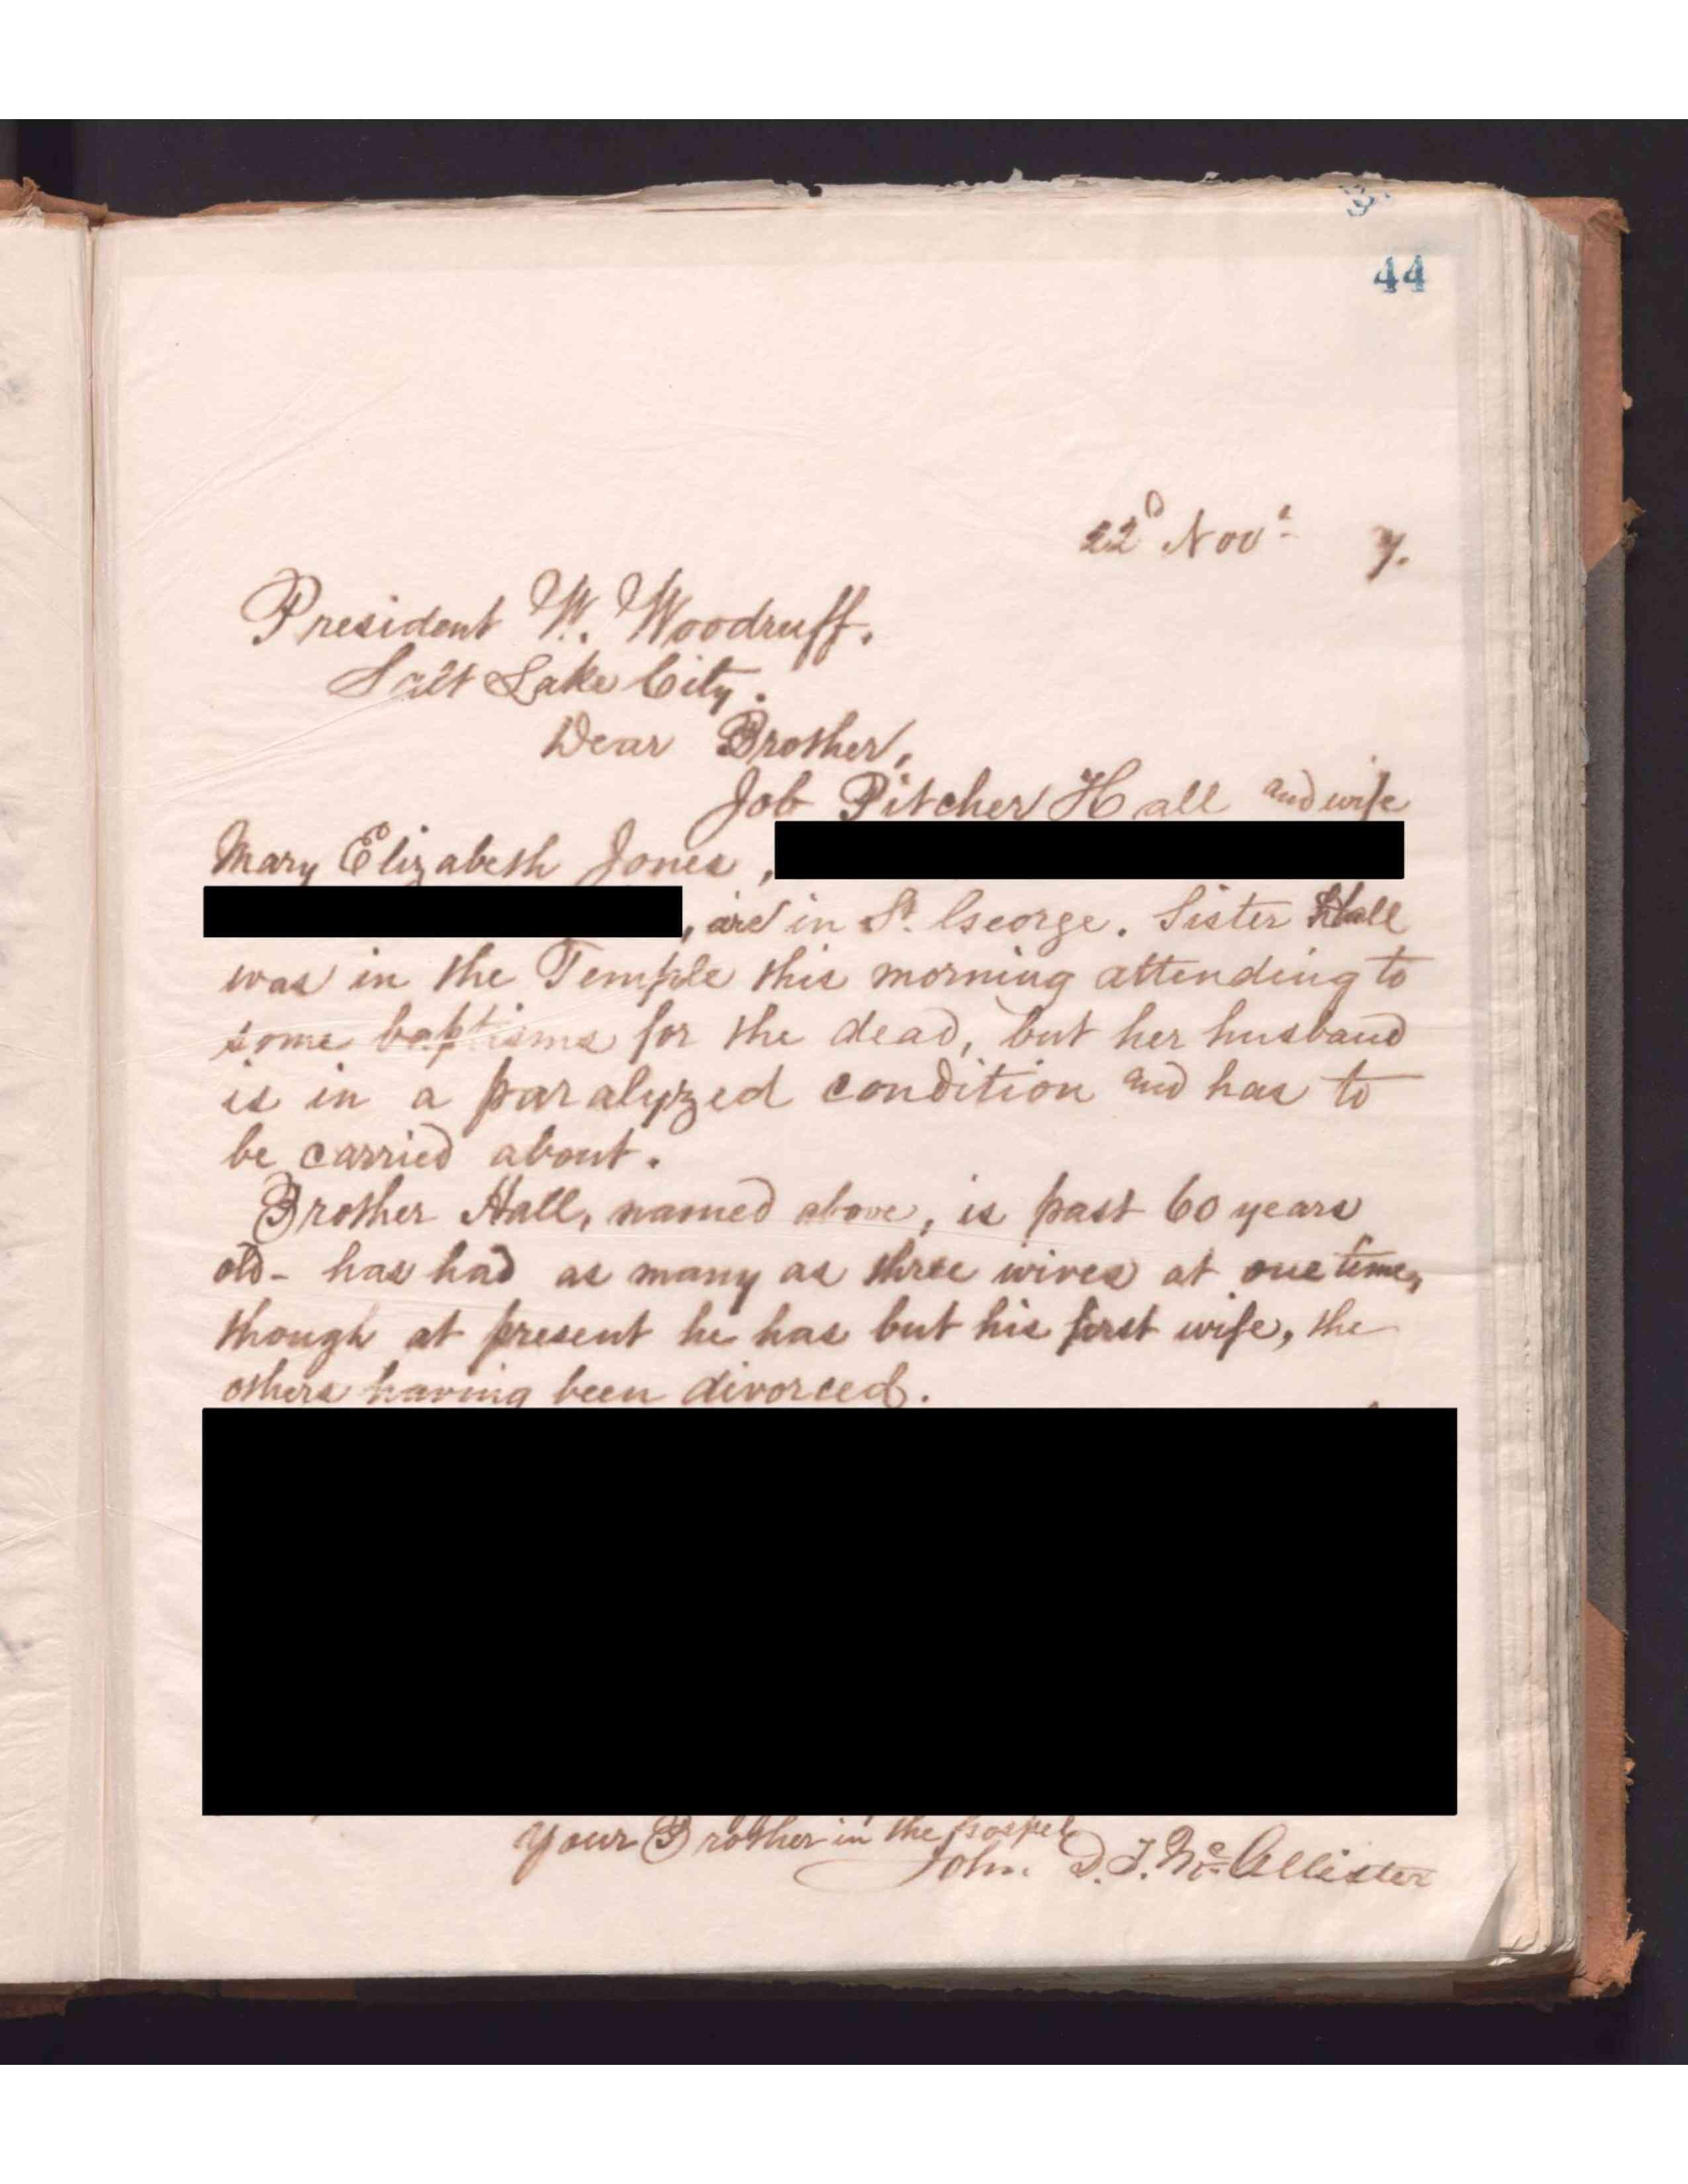 44
22d Novr 7.
President W. Woodruff.
Salt Lake City.
Dear Brother,
Job Pitcher Hall and wife
Mary Elizabeth Jones,
, are in St. George. Sister Hall
was in the Temple this morning attending to
some baptisms for the dead, but her husband
is in a paralyzed condition and has to
be carried about.
Brother Hall, named above, is past 60 years
old - has had as many as three wives at one time,
though at present he has but his first wife, the
others having been divorced.
Your Brother in the Gospel
John D. T. McAllister